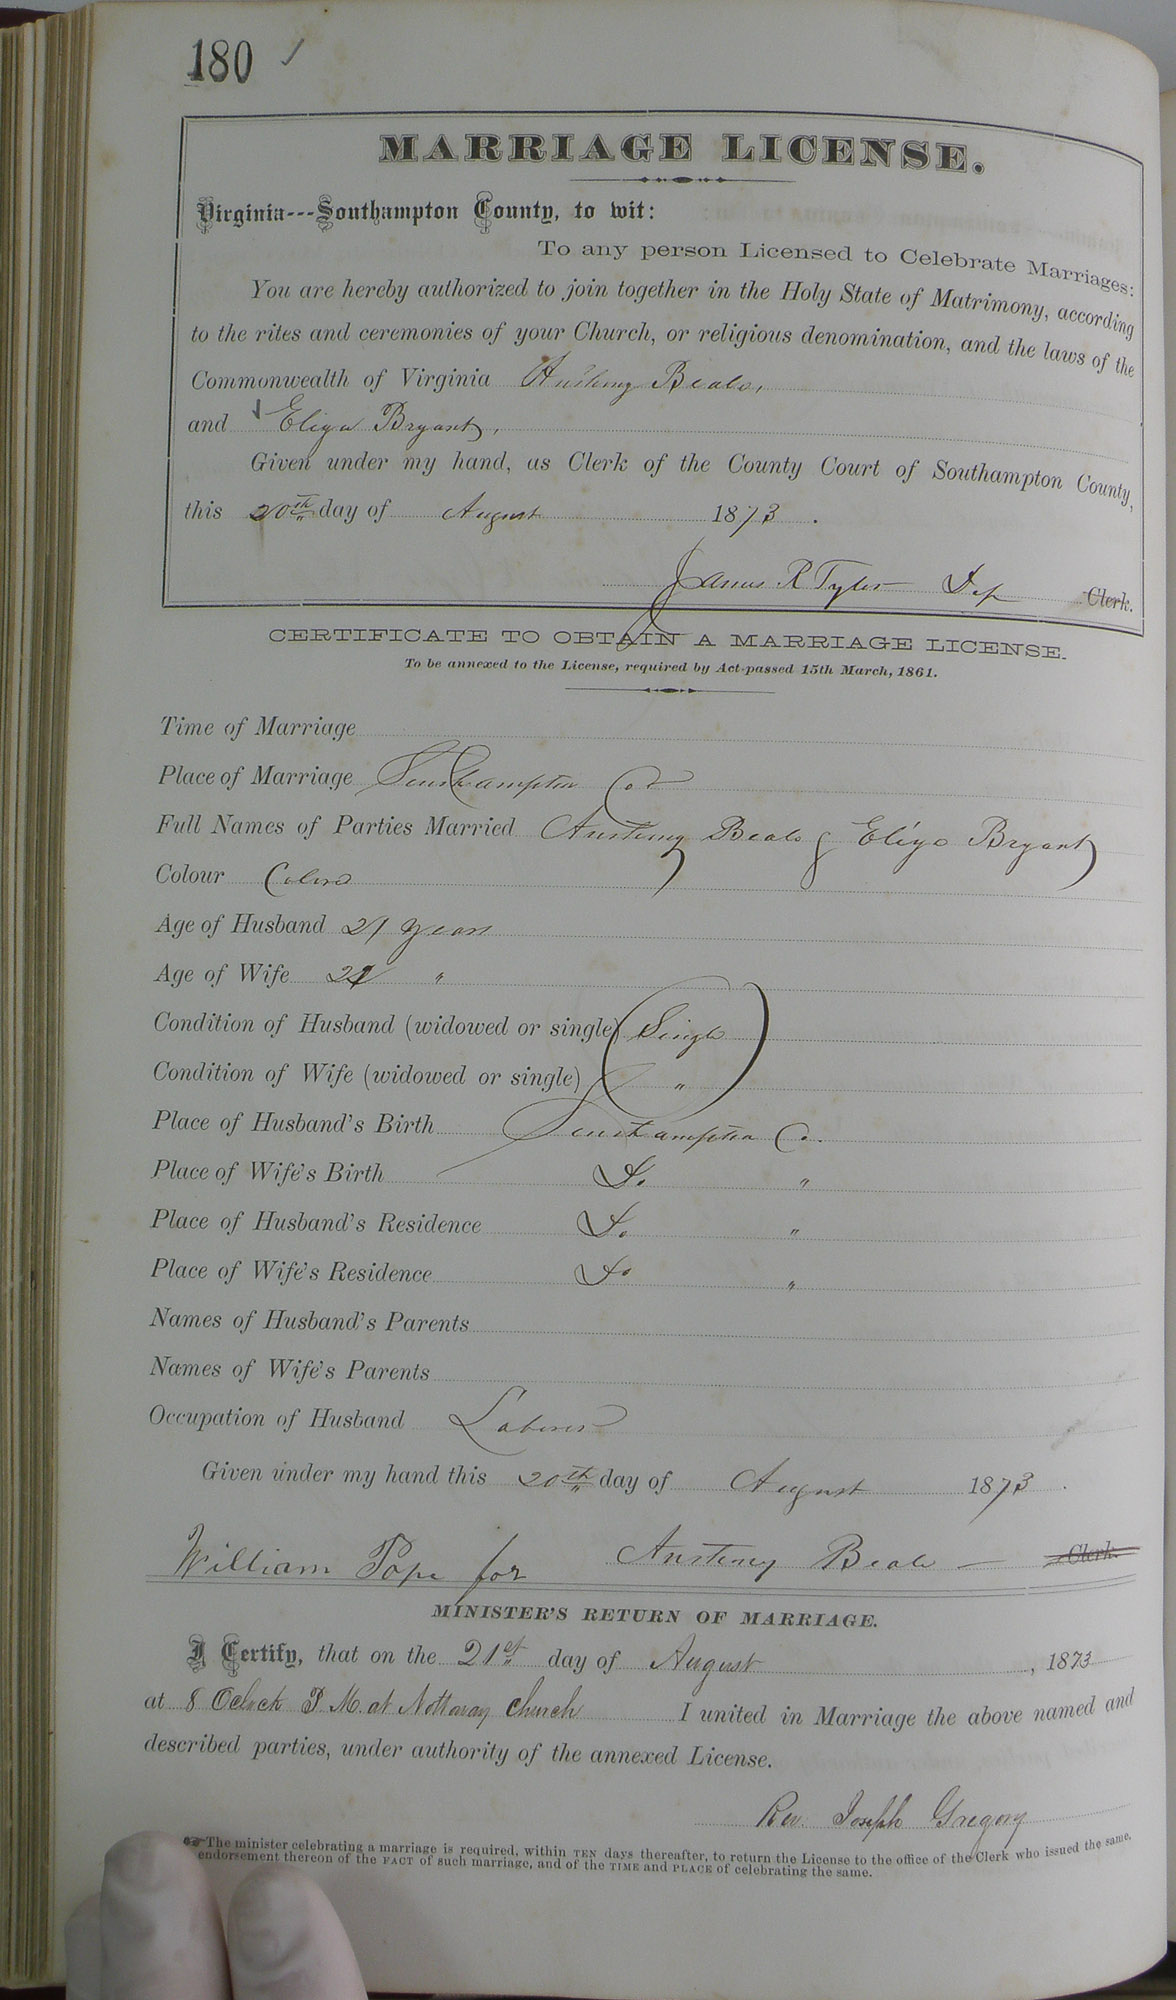 180 ✓
MARRIAGE LICENSE.
Virginia---Southampton County, to wit:
To any person Licensed to Celebrate Marriages:
You are hereby authorized to join together in the Holy State of Matrimony, according
to the rites and ceremonies of your Church, or religious denomination, and the laws of the
Commonwealth of Virginia Beale,
and Eliza Bryant,
Given under my hand, as Clerk of the County Court of Southampton County,
this 20th day of August 1873.
James R Tyler Dep Clerk.
CERTIFICATE TO OBTAIN A MARRIAGE LICENSE.
To be annexed to the License, required by Act passed 15th March, 1861.
Time of Marriage
Place of Marriage Southampton Co
Full Names of Parties Married Beale & Eliza Bryant
Colour Colored
Age of Husband 21 years
Age of Wife 21 "
Condition of Husband (widowed or single) Single
Condition of Wife (widowed or single) "
Place of Husband's Birth Southampton Co.
Place of Wife's Birth Do "
Place of Husband's Residence Do "
Place of Wife's Residence Do "
Names of Husband's Parents
Names of Wife's Parents
Occupation of Husband Laborer
Given under my hand this 20th day of August 1873.
William Pope for Beale Clerk.
MINISTER'S RETURN OF MARRIAGE.
I Certify, that on the 21st day of August, 1873
at 8 Oclock P M. at Nottoway Church I united in Marriage the above named and
described parties, under authority of the annexed License.
Rev. Joseph Gregory
The minister celebrating a marriage is required, within TEN days thereafter, to return the License to the office of the Clerk who issued the same,
endorsement thereon of the FACT of such marriage, and of the TIME and PLACE of celebrating the same.